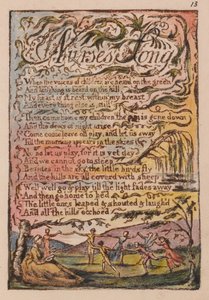 13
Nurse's Song
When the voices of children are heard on the green
And laughing is heard on the hill,
My heart is at rest within my breast
And every thing else is still
Then come home my children, the sun is gone down
And the dews of night arise
Come come leave off play, and let us away
Till the morning appears in the skies
No no let us play, for it is yet day
And we cannot go to sleep
Besides in the sky, the little birds fly
And the hills are all coverd with sheep
Well well go & play till the light fades away
And then go home to bed
The little ones leaped & shouted & laugh'd
And all the hills ecchoed